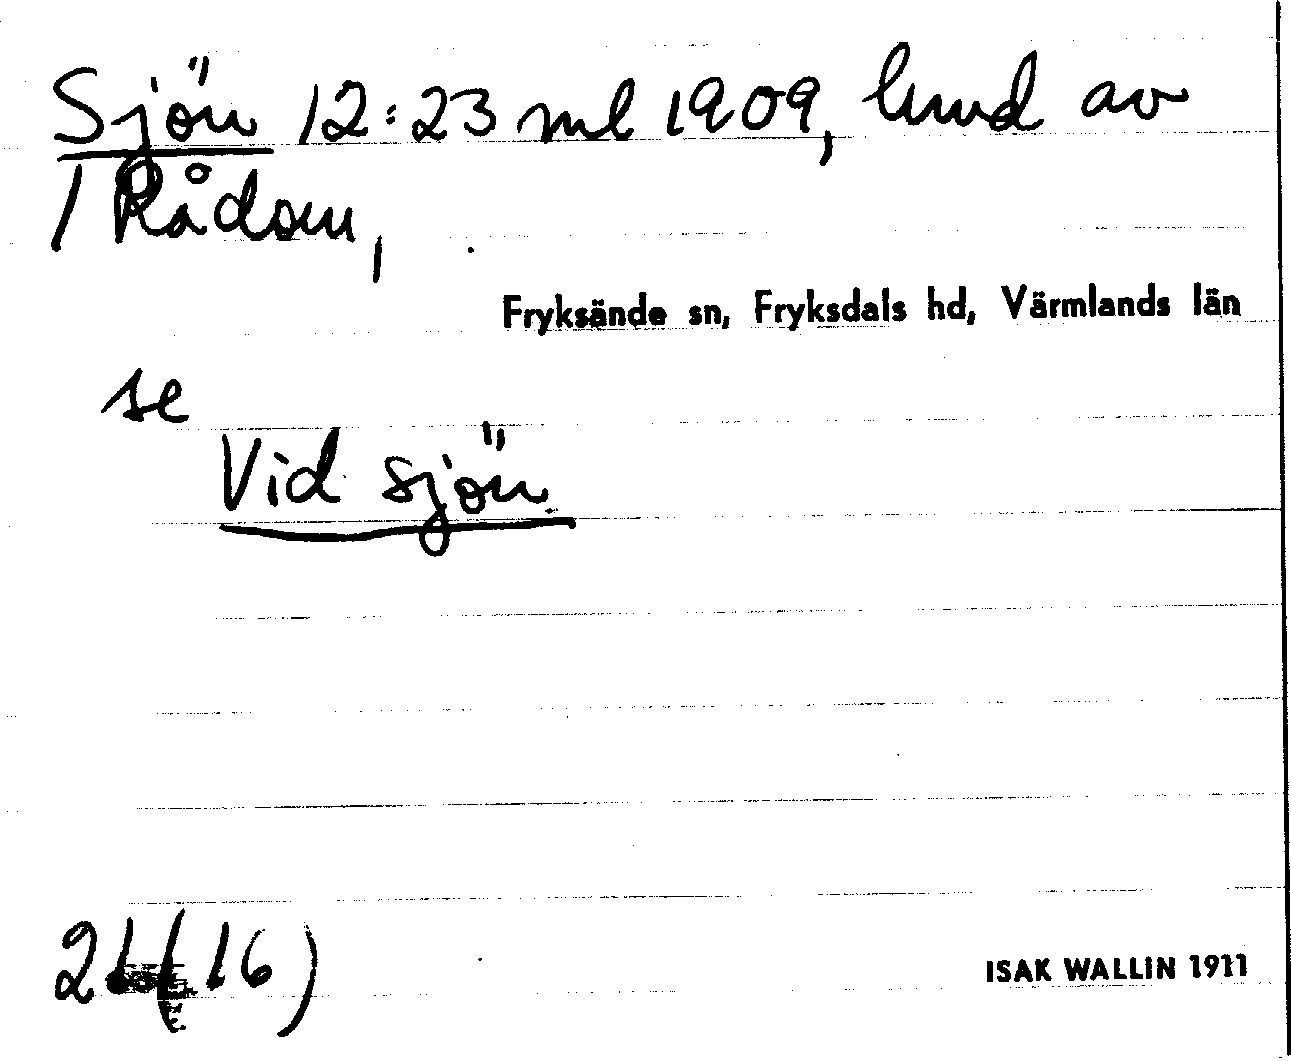 Sjön 12:23 ml 1909, lmd av
/ Rådom,
Fryksände sn, Fryksdals hd, Värmlands län
se
Vid sjön.
21(16)
ISAK WALLIN 1911